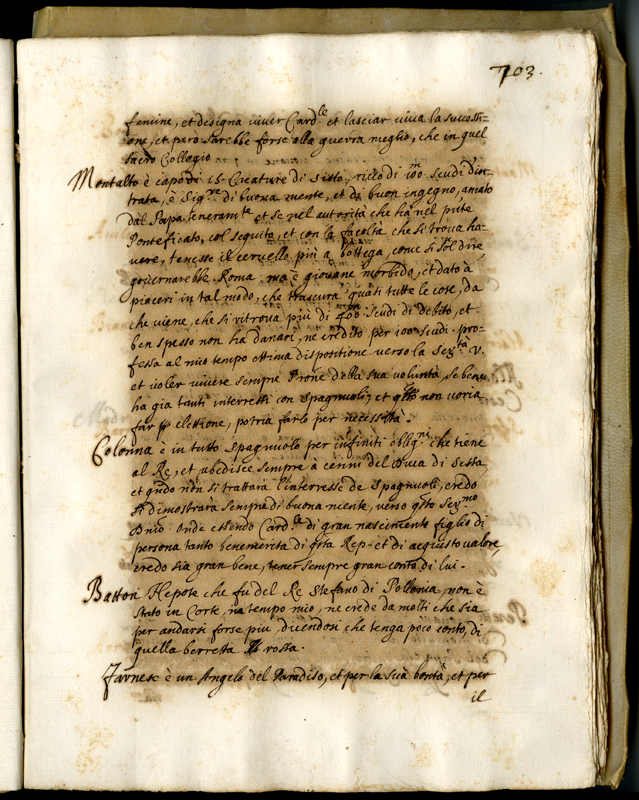 703.
femine, et designa viver Card.le et lasciar viva la successi-
one, et però sarebbe forse alla guerra meglio, che in quel
sacro Collegio
Montalto è capo di 15 Creature di Sisto, ricco di 100 m scudi d'in-
trata, è Sig.re di buona mente, et di buon ingegno, amato
dal Papa teneram.te et se nel autorità che hà nel pñte
Ponteficato, col seguito, et con la facoltà che si trova ha-
vere, tenesse il cervello più a bottega, come si sol dire,
governarebbe Roma, ma è giovane morbido, et dato à
piaceri in tal modo, che trascura quasi tutte le cose, da
che viene, che si ritrova più di 400 m scudi di debito, et
ben spesso non ha danari, ne credito per 100 scudi. pro-
fessa al mio tempo ottima dispositione verso la Ser.tà V.
et voler vivere sempre Prone della sua voluntà, se bene
ha già tanti interessi con Spagnuoli, et qsto non voria
far elettione, potria farlo per necessità.
Colonna è in tutto Spagnuolo per infiniti oblig.ni che tiene
al Re, et ubedisce sempre à cenni del Duca di Sessa,
et qñdo non si trattarà l'interresse de Spagnuoli, credo
si dimostrarà sempre di buona mente, verso qsto Ser.mo
Dnio. Onde essendo Card.le di gran nascimento figlio di
persona tanto benemerita di qsta Rep. et di acquisto valore,
credo sia gran bene, tener sempre gran conto di lui.
Batton Nepote che fu del Re Stefano di Pollonia, non è
stato in Corte, ma tempo mio, ne crede da molti che sia
per andarsi forse più, dicendosi che tenga poco conto, di
quella berretta rossa.
Farnese è un Angelo del Paradiso, et per la sua bontà, et per
il